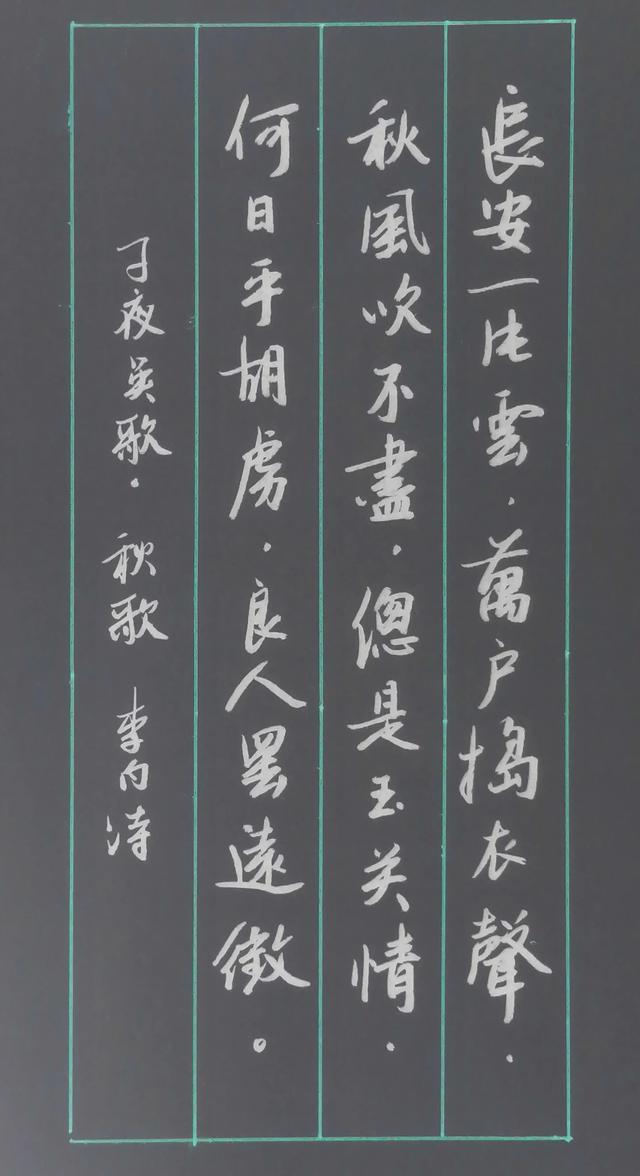 長安一片雲．萬户搗衣聲．
秋風吹不盡．總是玉关情．
何日平胡虜．良人罢遠徵。
子夜吴歌．秋歌 李白诗